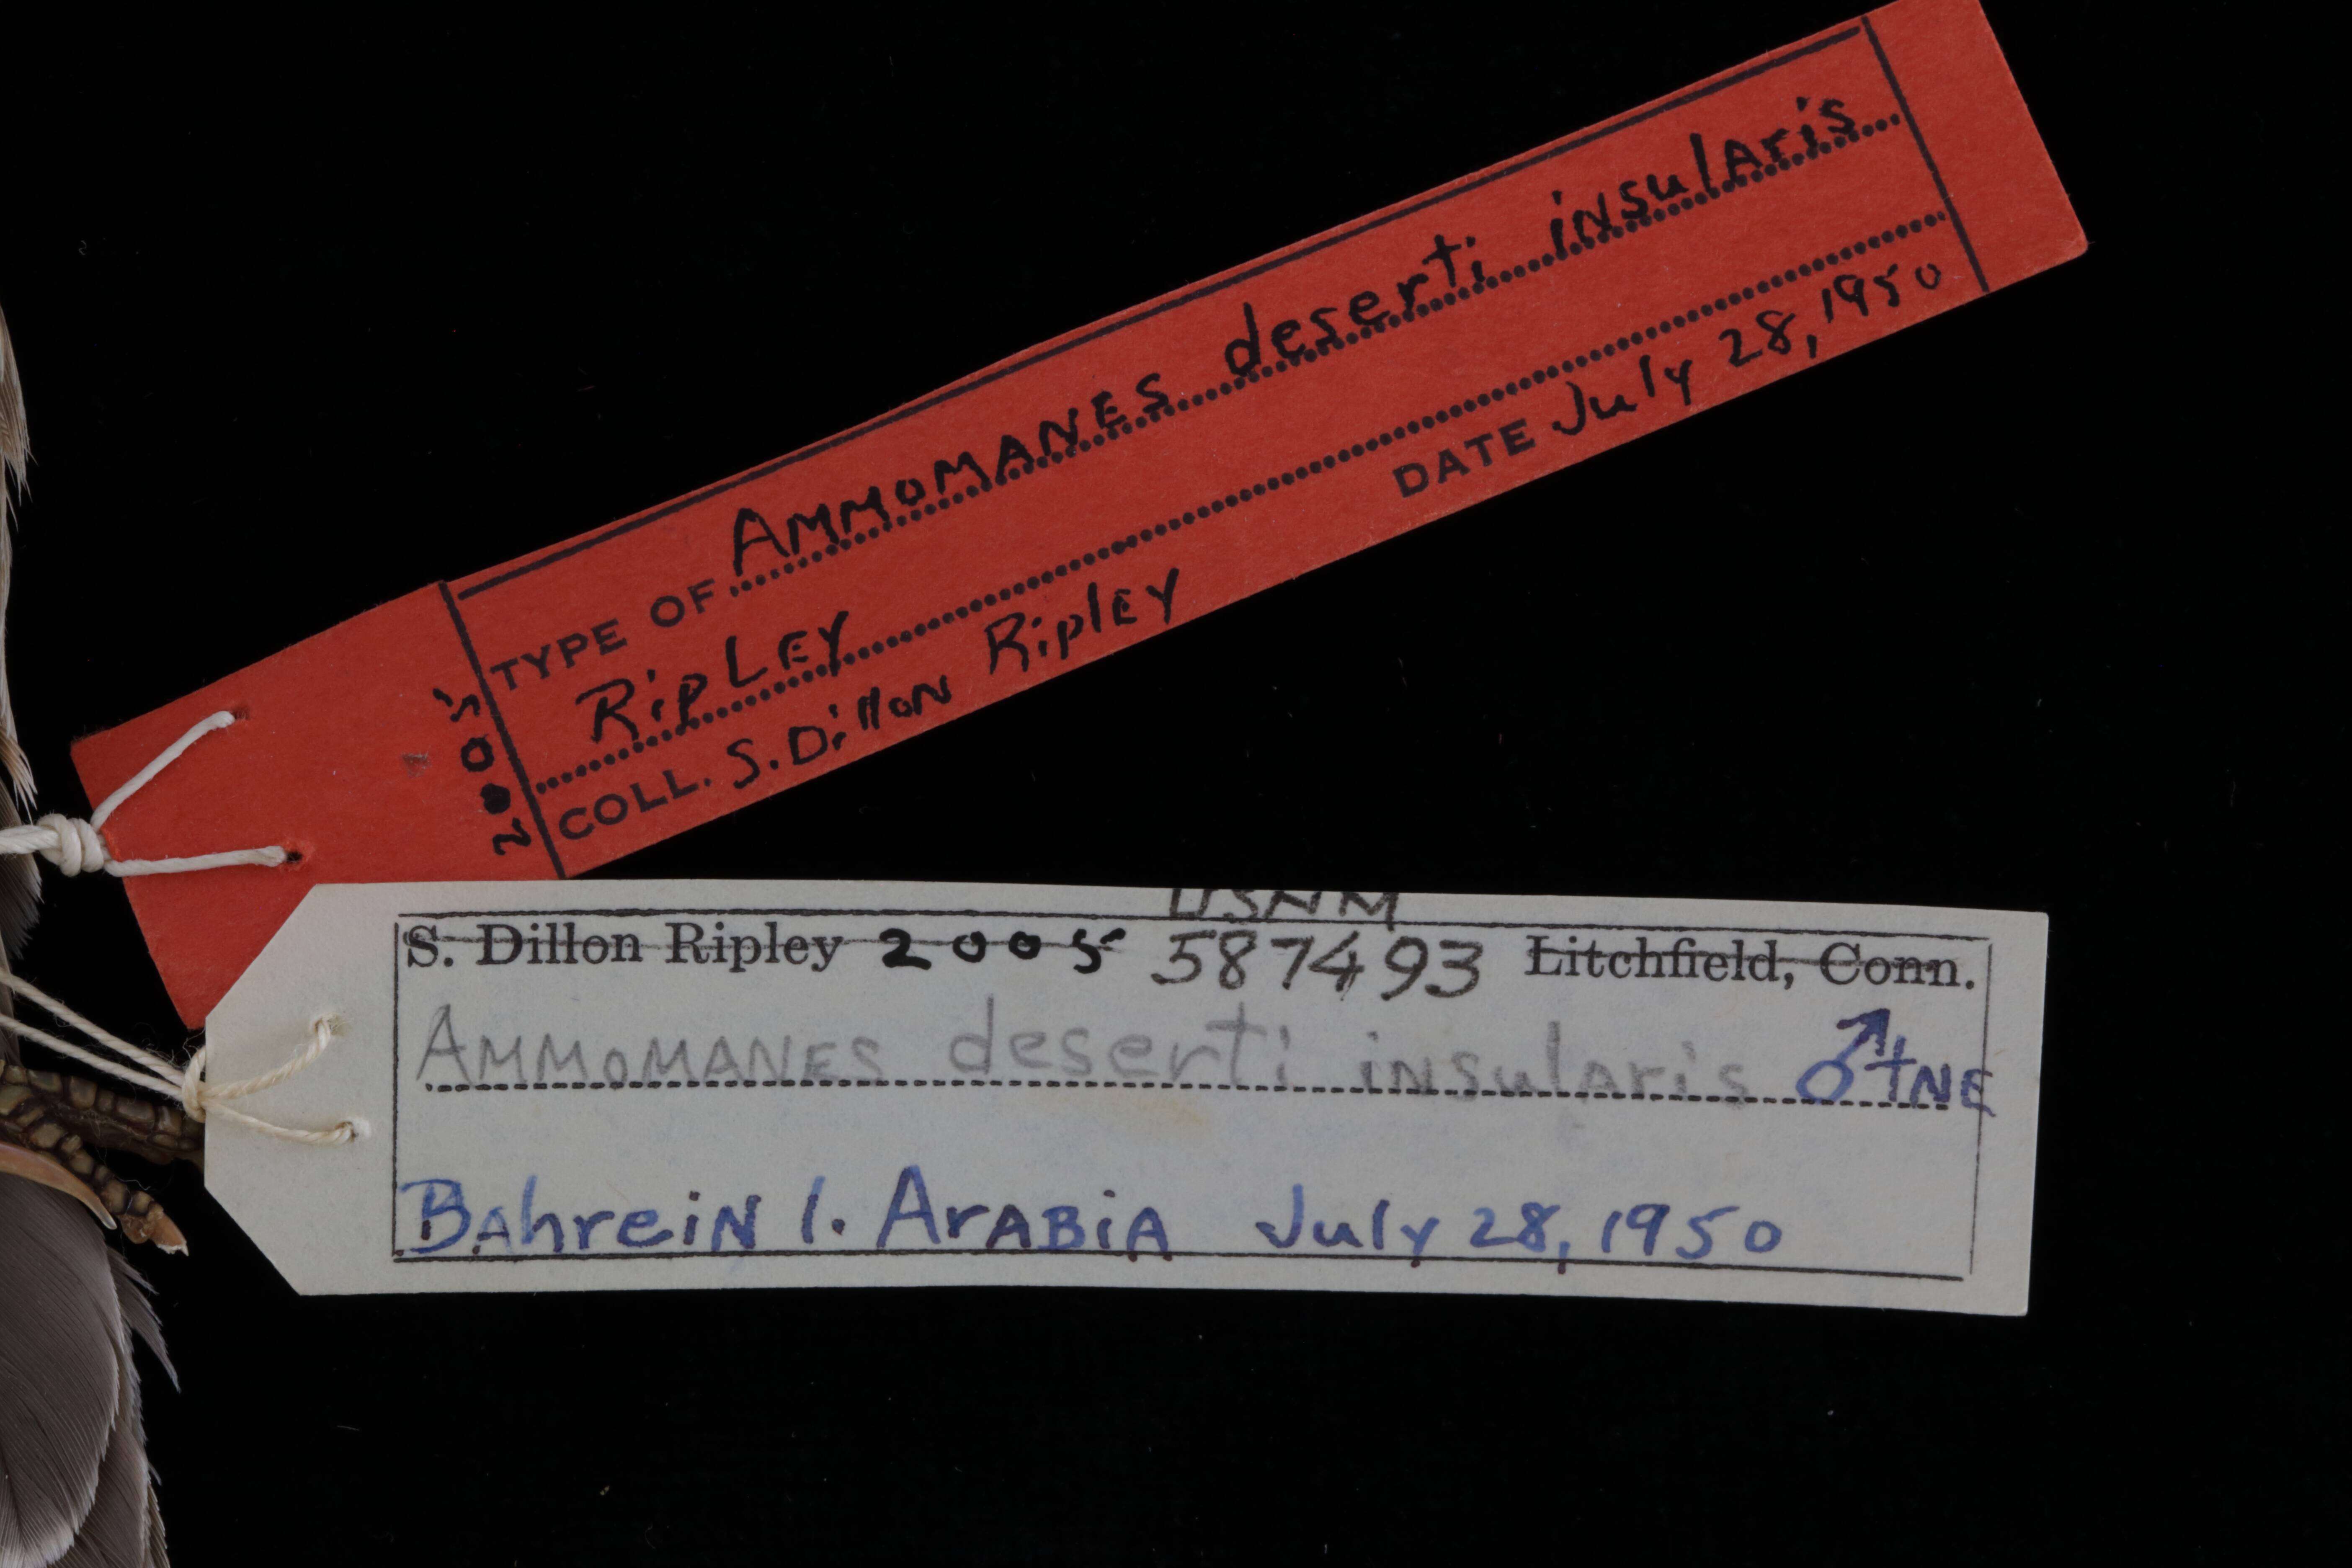 TYPE OF AMMOMANES deserti insularis
RipLEY
COLL. S. Dillon Ripley DATE July 28, 1950
2005
USNM
S. Dillon Ripley 2005 587493 Litchfield, Conn.
AMMOMANES deserti insularis ♂ tNE
BAhreiN I. ArABiA July 28, 1950